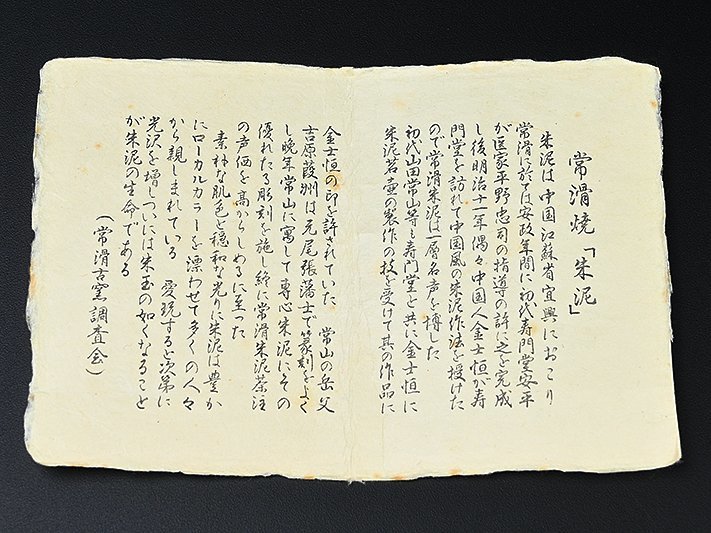 常滑焼「朱泥」
朱泥は中国江蘇省宜興におこり
常滑に於ては安政年間に初代寿門堂安平
が医家平野忠司の指導の許に之を完成
し後明治十一年偶々中国人金士恒が寿
門堂を訪れて中国風の朱泥作法を授けた
ので常滑朱泥は一層名声を博した
初代山田常山等も寿門堂と共に金士恒に
朱泥茗壷の製作の技を受けて其の作品に
金士恒の印を許されていた 常山の岳父
吉原葭洲は元尾張藩士で篆刻をよく
し晩年常山に寓して専心朱泥にその
優れたる彫刻を施し終に常滑朱泥茶注
の声価を高からしめるに至つた
素朴な肌色と穏和な光りに朱泥は豊か
にローカルカラーを漂わせて多くの人々
から親しまれている 愛玩すると次第に
光沢を増しついには朱玉の如くなること
が朱泥の生命である
(常滑古窯調査会)